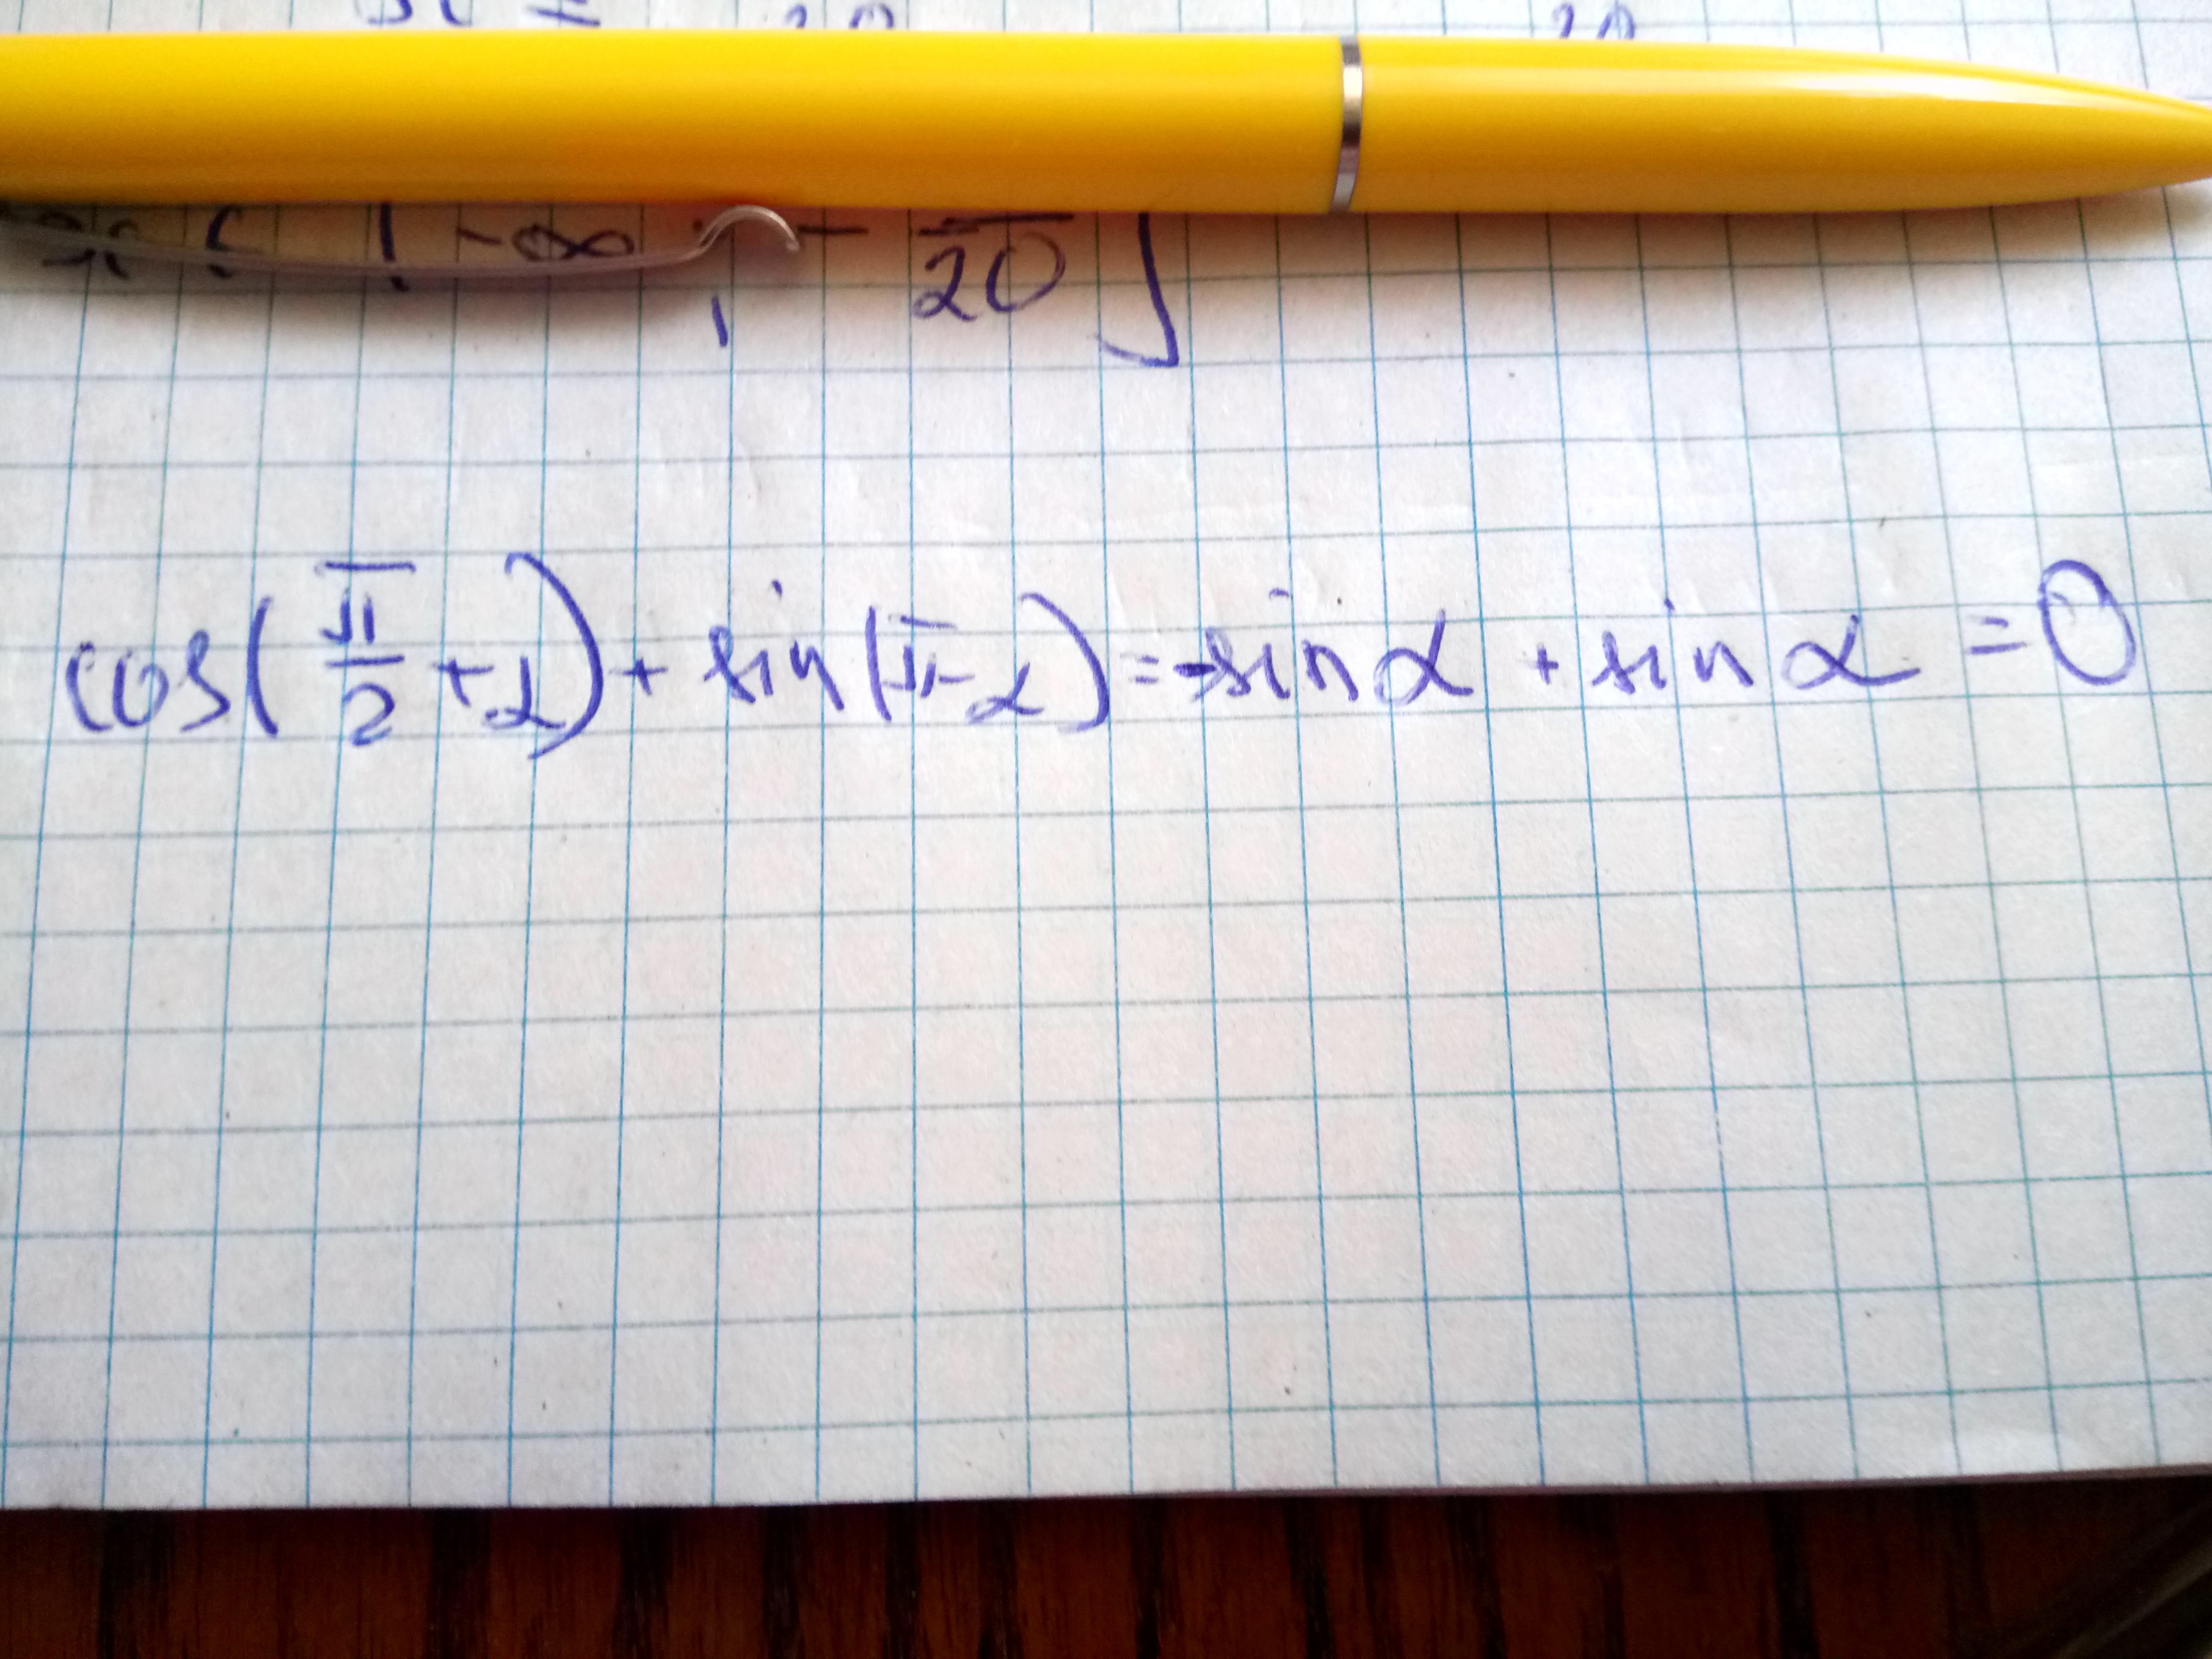 -∞ ; - 20 ]
cos(π/2 + α) + sin(π - α) = -sin α + sin α = 0